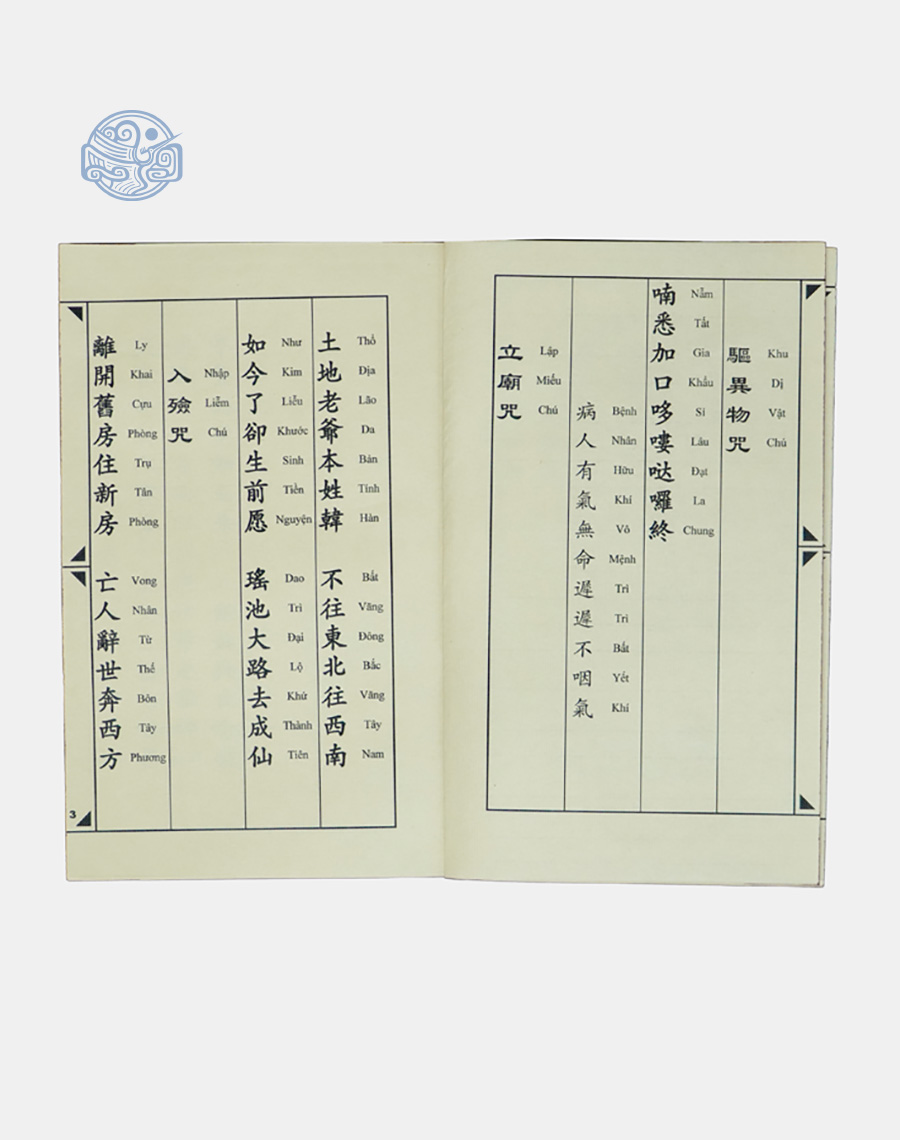 驅異物咒
Khu Dị Vật Chú
喃悉加口哆嘍哒囉終
Nẫm Tất Gia Khẩu Si Lâu Đạt La Chung
病人有氣無命遲遲不咽氣
Bệnh Nhân Hữu Khí Vô Mệnh Trì Trì Bất Yết Khí
立廟咒
Lập Miếu Chú
土地老爺本姓韓 不往東北往西南
Thổ Địa Lão Da Bản Tính Hàn Bất Vãng Đông Bắc Vãng Tây Nam
如今了卻生前愿 瑤池大路去成仙
Như Kim Liễu Khước Sinh Tiền Nguyện Dao Trì Đại Lộ Khứ Thành Tiên
入殮咒
Nhập Liễm Chú
離開舊房住新房 亡人辭世奔西方
Ly Khai Cựu Phòng Trụ Tân Phòng Vong Nhân Từ Thế Bôn Tây Phương
3